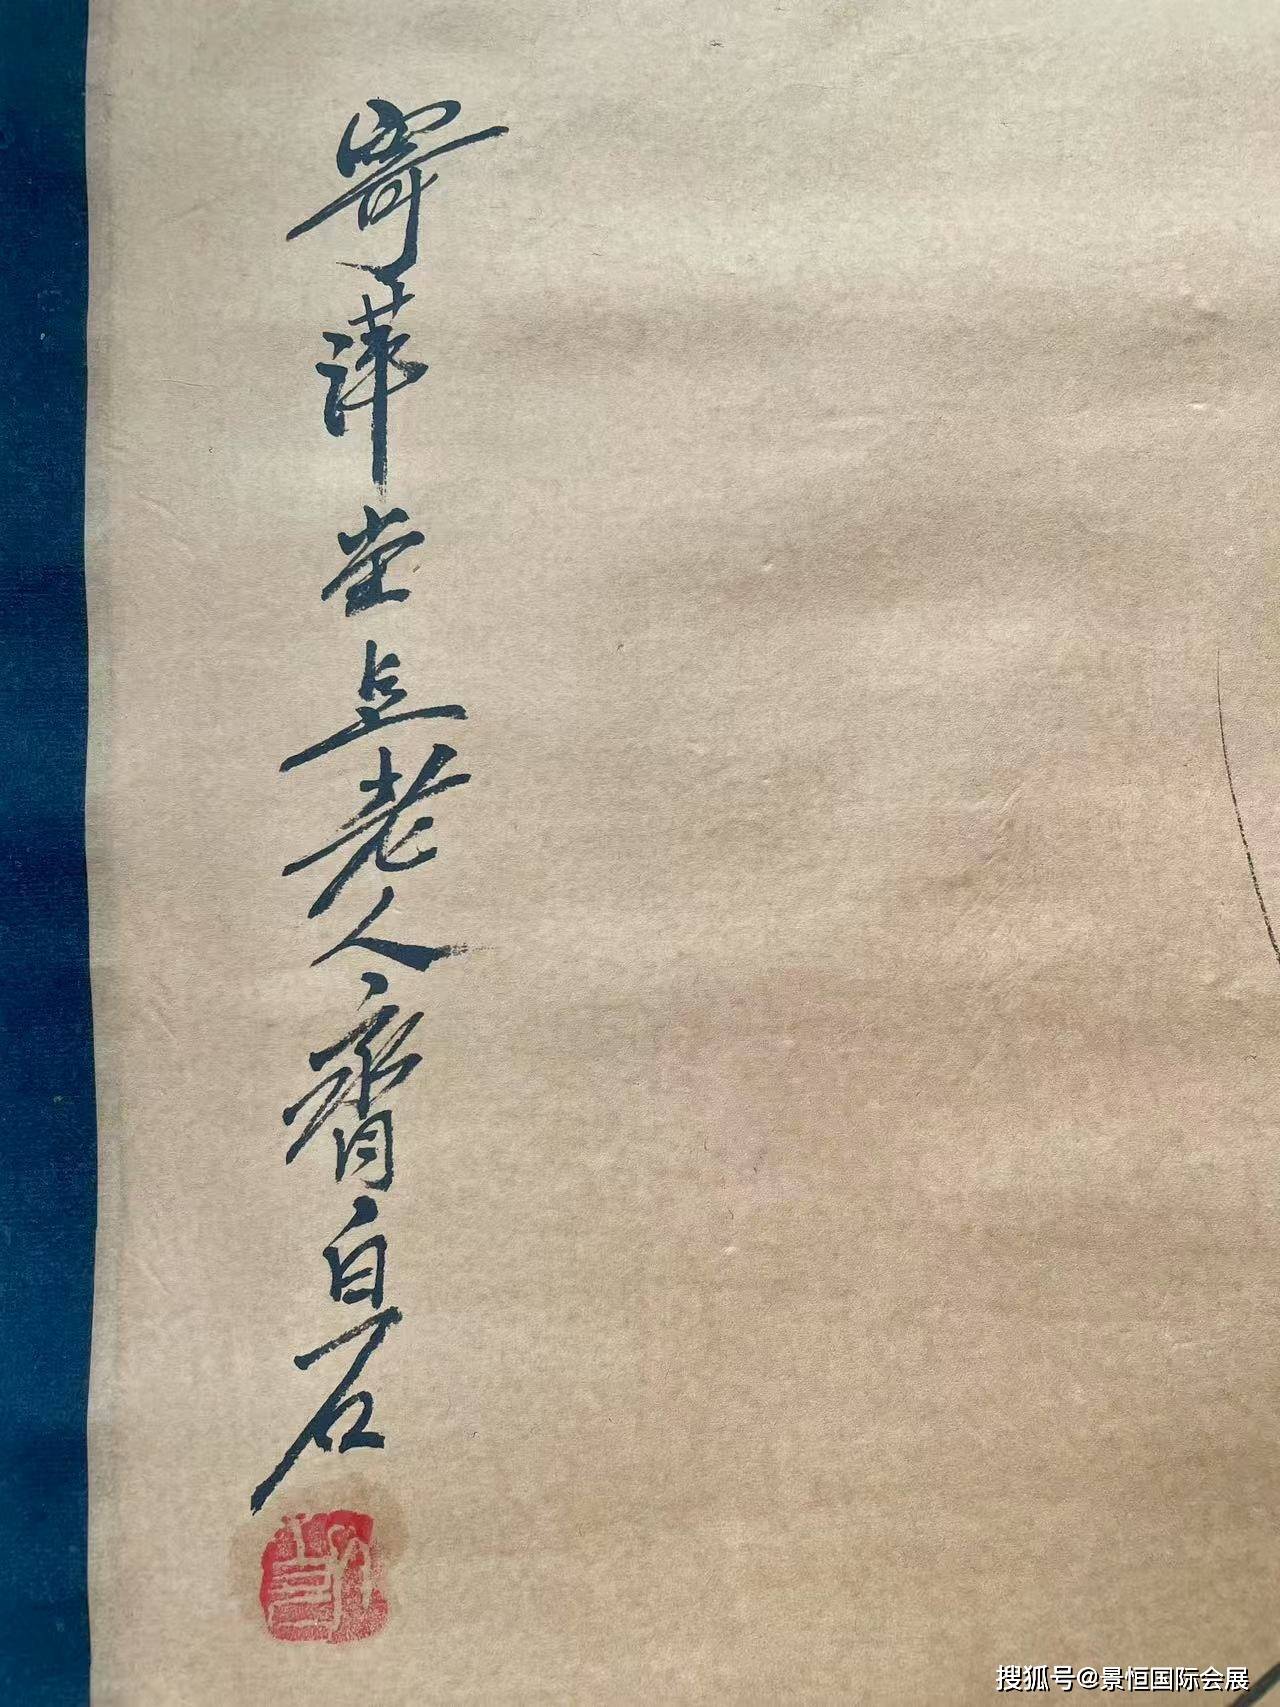 寄萍堂上老人齊白石
搜狐号@景恒国际会展